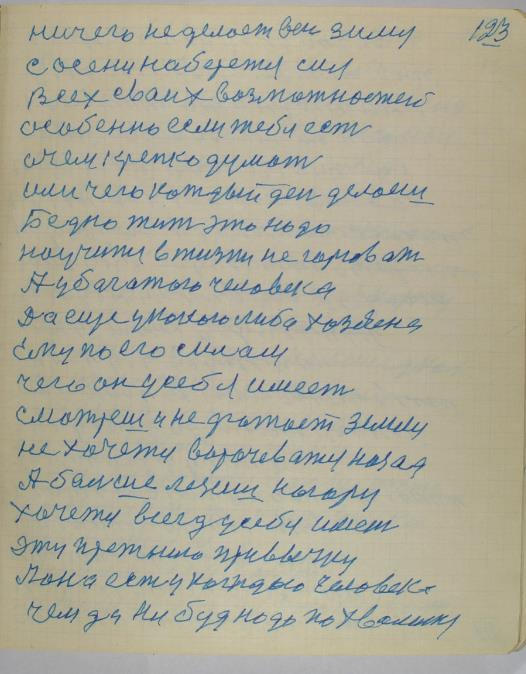 123
ничего неделает вен зиму
с осени наберетя сил
Всех сваих возможностей
особенно если тебя ест
очем крепко думат
или чего каждый ден делаеш
Бедно жит это надо
научитя в жизни не горават
А у багатого человека
Да еще у
Ему по его силам
чего он усебя имеет
сматреш и не
не хочетя назад
А болше лезеш нагору
хочетя всегда усебя имет
эту привычку
Она ест у каждого человека
чем да нибуд надо похвалитя